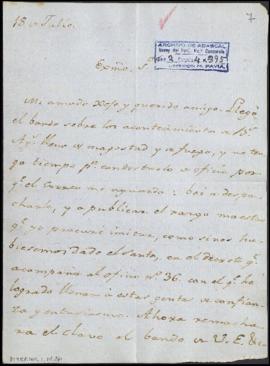 18 Julio.
7
ARCHIVO DE ABASCAL
Exmo. S.or
Mi amado Xefe y querido amigo. Llegó
el bando sobre los acontecimientos de B.s
Ay.s lleno de magestad y de fuego, y no ten
go tiempo p.a contestarlo de oficio por
q.e el correo me aguarda: boi a despa
charlo, y a publicar el rasgo maestro
q.e yo procuré imitar, como si nos hu
biesemos dado el Santo, en el decreto q.e
acompaña al oficio n.o 36. con el q.e he
logrado llenar a estas gentes de confian
za y entusiasmo. Ahora remacha
ra el clavo el bando de V.E.